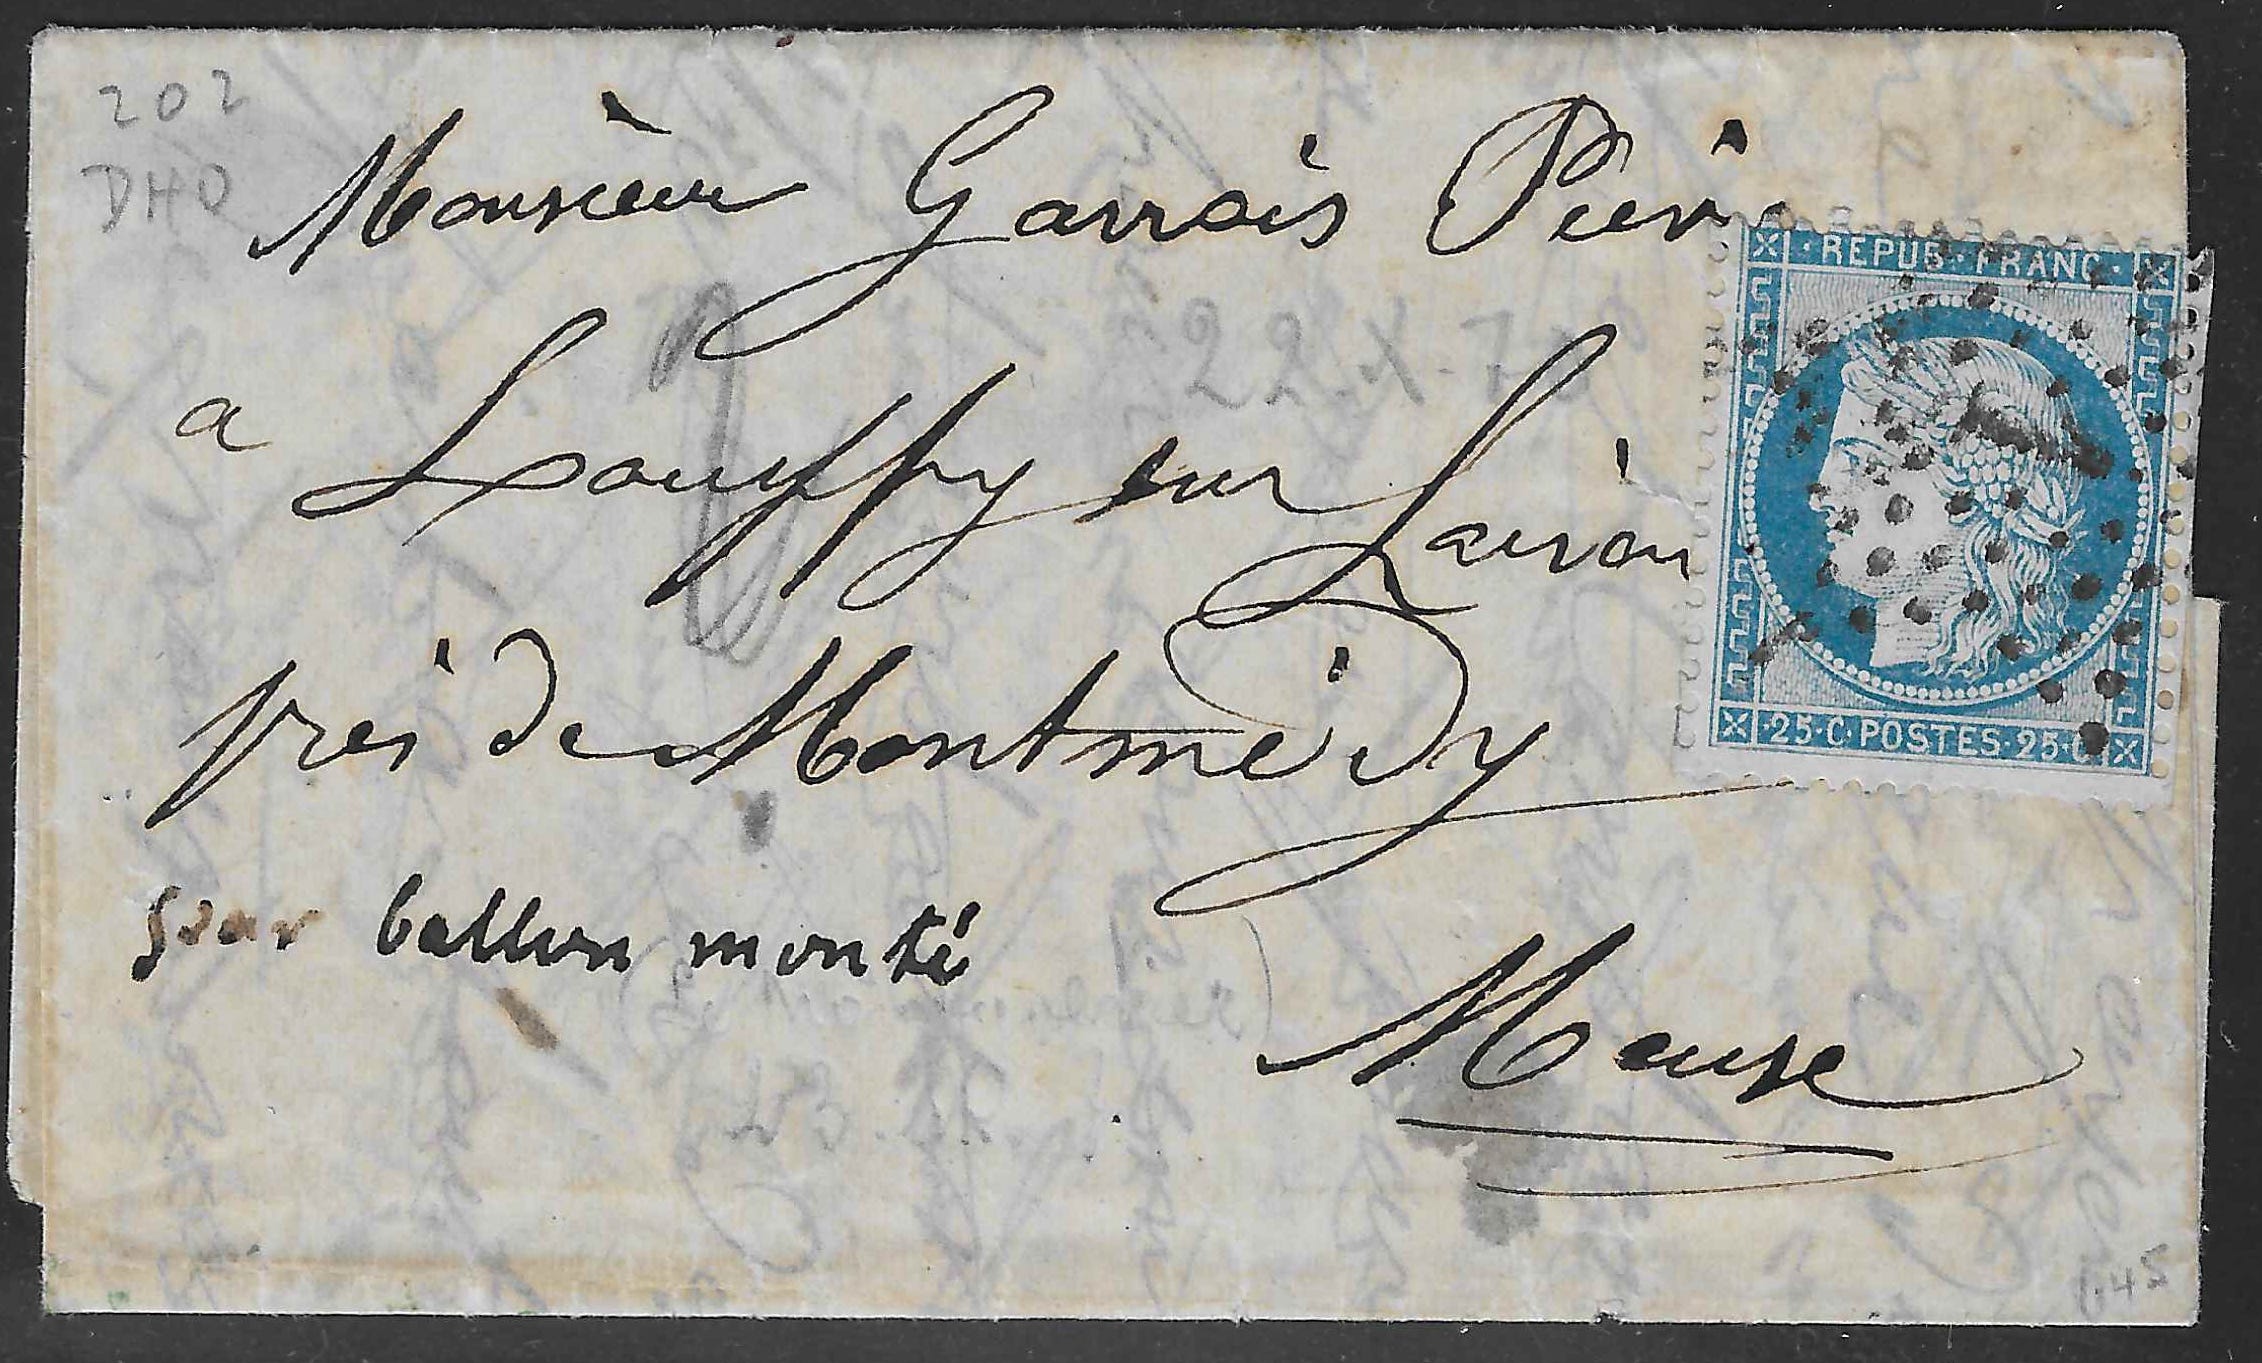 202
DHO
Monsieur Garrois Pierre
22.X.70
a Louppy sur Loison
près de Montmédy
par ballon monté
Meuse
REPUB·FRANC·
·25·C·POSTES·25·C·
1.45